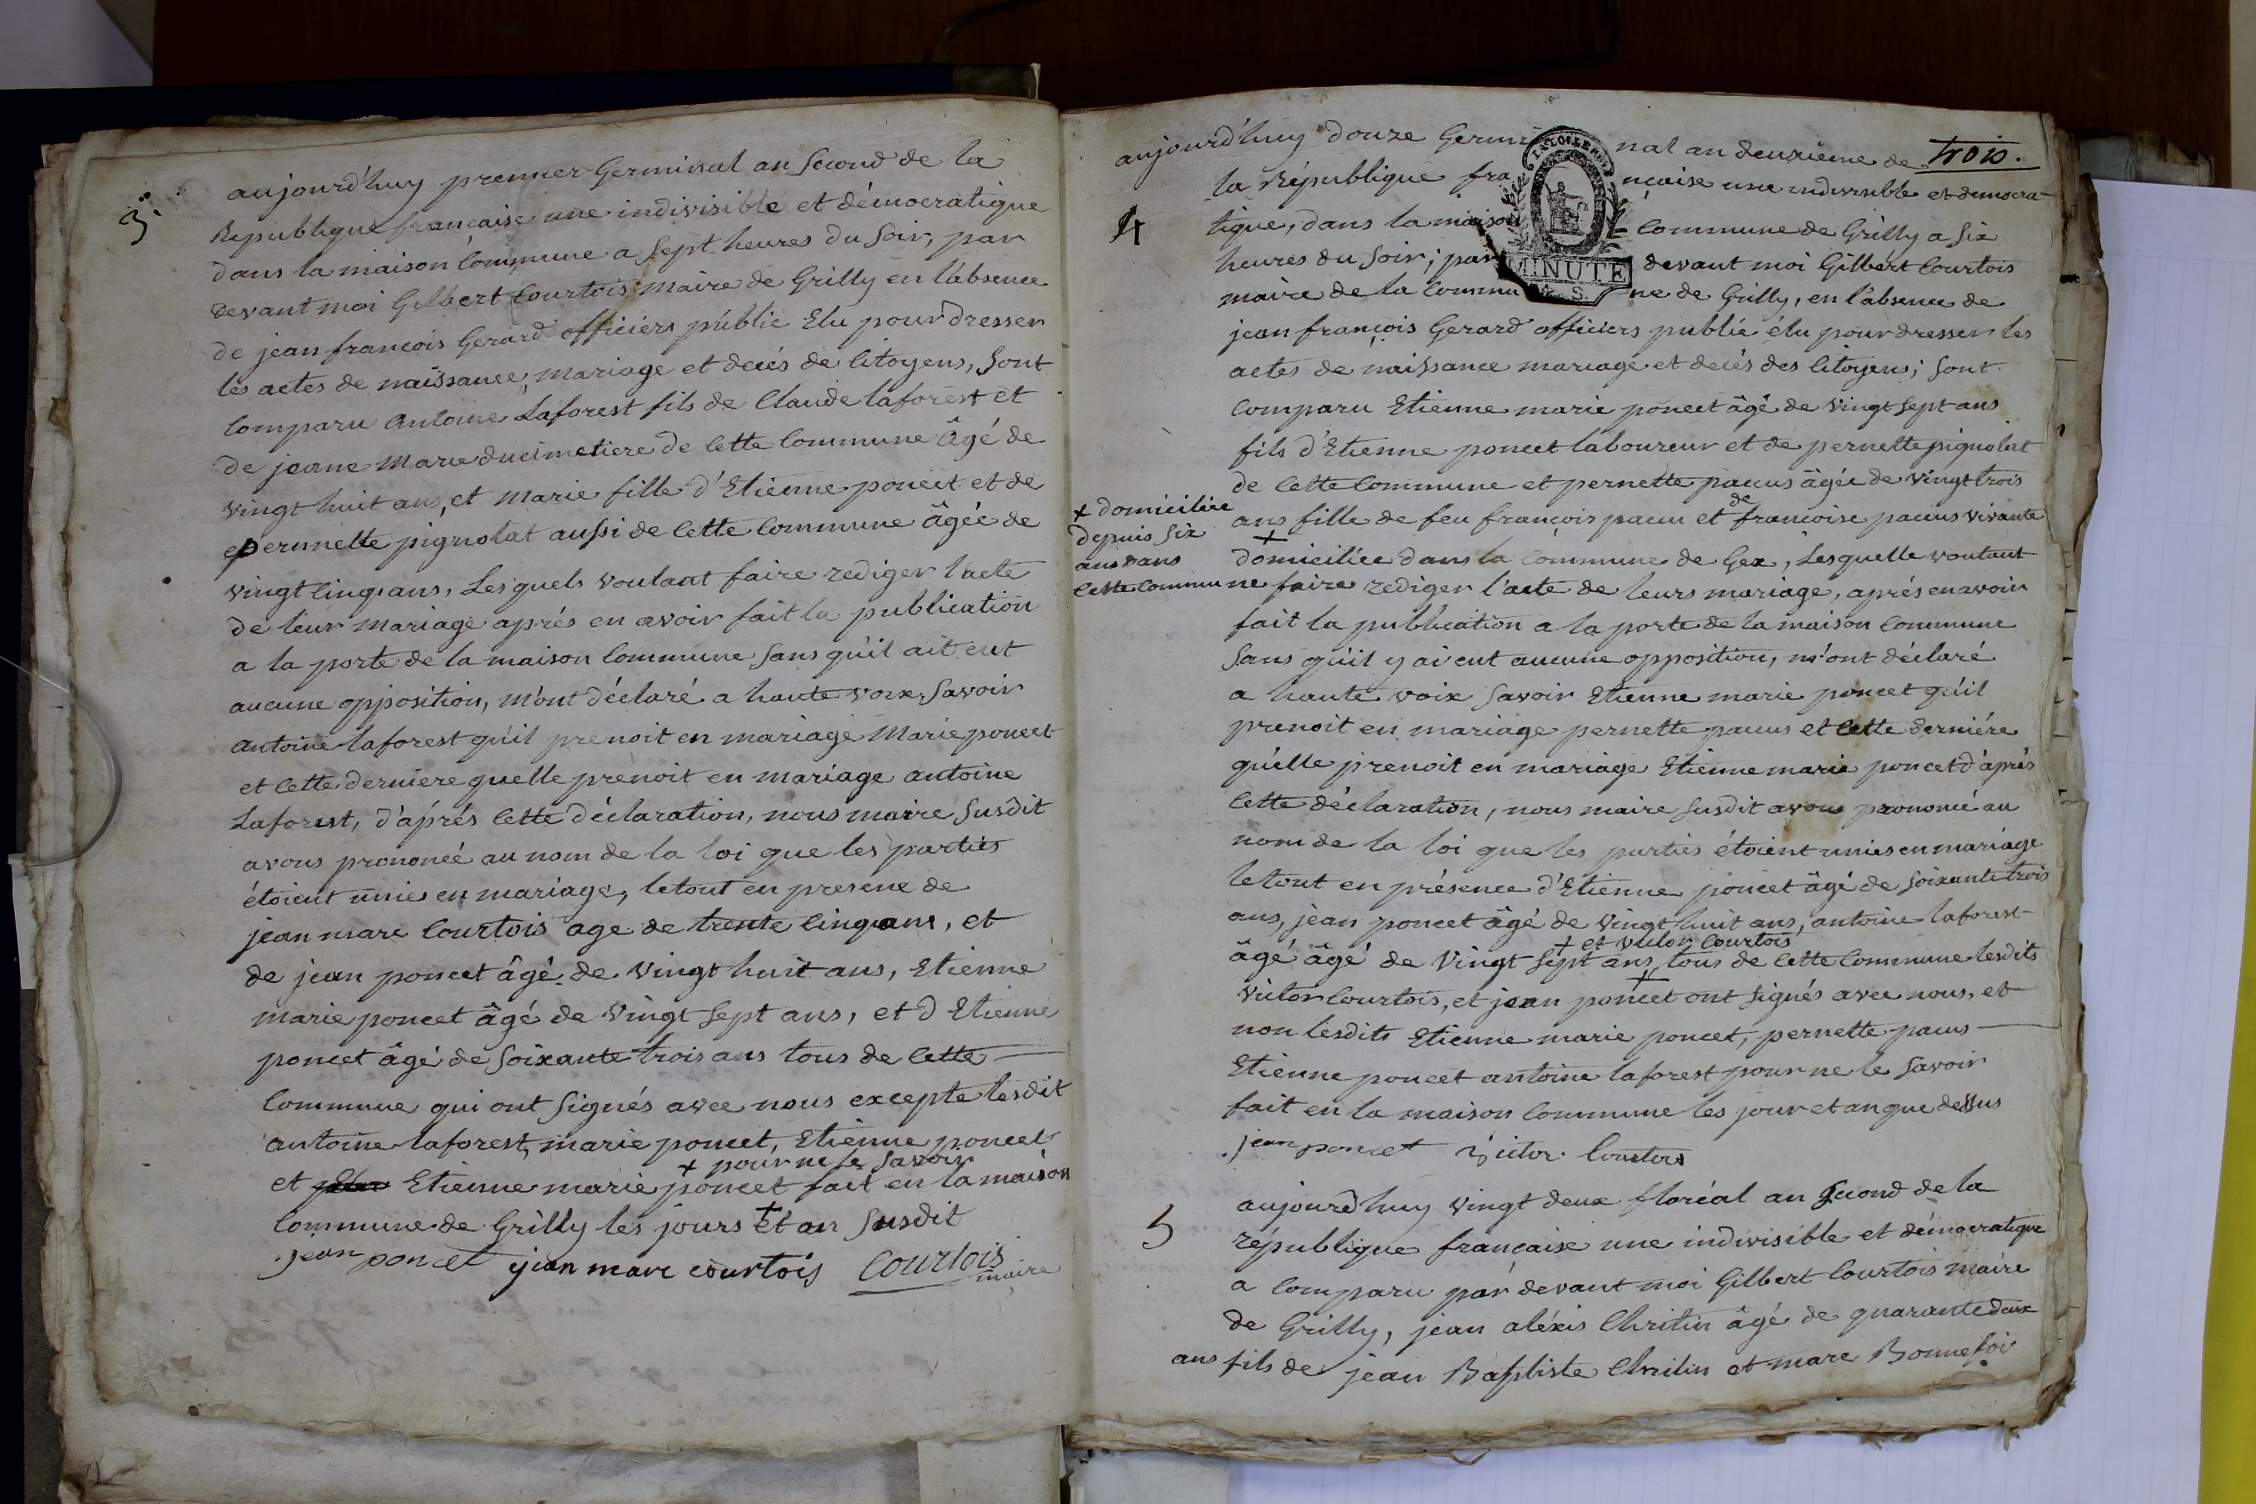 3.
aujourd'huy premier Germinal an second de la
Republique francaise une indivisible et démocratique
dans la maison Commune a sept heures du soir, par
devant moi Gilbert Courtois maire de Grilly en l'absence
de jean francois Gerard officiers public Elu pour dresser
les actes de naissance, mariage et decés de Citoyens, sont
Comparu Antoine Laforest fils de Claude laforest et
de jeane Marie ducimetiere de Cette Commune âgé de
vingt huit ans, et Marie fille d'Etienne poncet et de
pernnette pignolat aussi de Cette Commune âgée de
vingt Cinq ans, Lesquels voulant faire rediger l'acte
de leur mariage aprés en avoir fait la publication
a la porte de la maison Commune sans qu'il ait eut
aucune opposition, m'ont déclaré a haute voix, savoir
antoine laforest qu'il prenoit en mariage Marie poncet
et Cette derniere quelle prenoit en mariage antoine
Laforest, d'aprés Cette déclaration, nous maire susdit
avons prononcé au nom de la loi que les parties
étoient unies en mariage, le tout en presene de
jean marc Courtois age de trente Cinq ans, et
de jean poncet âgé de vingt huit ans, Etienne
marie poncet âgé de vingt sept ans, et d Etienne
poncet âgé de soixante trois ans tous de Cette
Commune qui ont signés avec nous excepte lesdit
antoine laforest, marie poncet, Etienne poncet
+ pour ne le savoir
et Etienne marie poncet fait en la maison
Commune de Grilly les jours + et an susdit
jean poncet jean marc courtois Courtois
maire
trois.
aujourd'huy douze Germinal an deuxième de
la République française une indivisible et democra-
4
tique, dans la maison Commune de Grilly a six
heures du soir; par devant moi Gilbert Courtois
MINUTE
maire de la Commune de Grilly, en l'absence de
jean françois Gerard officiers public élu pour dresser les
actes de naissance mariage et decés des Citoyens; sont
Comparu Etienne marie poncet âgé de vingt sept ans
fils d'Etienne poncet laboureur et de pernette pignolat
de Cette Commune et pernette pacus âgée de vingt trois
de
ans fille de feu françois pacus et francoise pacus vivante
+ domiciliée
depuis six
ans dans
Cette Commune
+
domiciliée dans la Commune de Gex, Lesquelle voulant
faire rediger l'acte de leurs mariage, aprés en avoir
fait la publication a la porte de la maison Commune
sans qu'il y ai eut aucune opposition, m'ont déclaré
a haute voix savoir Etienne marie poncet qu'il
prenoit en mariage pernette pacus et Cette derniére
qu'elle prenoit en mariage Etienne marie poncet d'aprés
Cette déclaration, nous maire susdit avons prononcé au
nom de la loi que les parties étoient unies en mariage
le tout en présence d'Etienne poncet âgé de soixante trois
ans, jean poncet âgé de vingt huit ans, antoine laforest
+ et victor Courtois
âgé âgé de vingt sept ans, tous de Cette Commune lesdits
+
victor Courtois, et jean poncet ont signés avec nous, et
non lesdits Etienne marie poncet, pernette pacus
Etienne poncet antoine laforest pour ne le savoir
fait en la maison Commune les jour et an que dessus
jean poncet victor Courtois
5
aujourd'huy vingt deux floréal an second de la
république française une indivisible et démocratique
a Comparu par devant moi Gilbert Courtois maire
de Grilly, jean aléxis Chritin âgé de quarante deux
ans fils de jean Baptiste Chritin et marc Bonnefoi